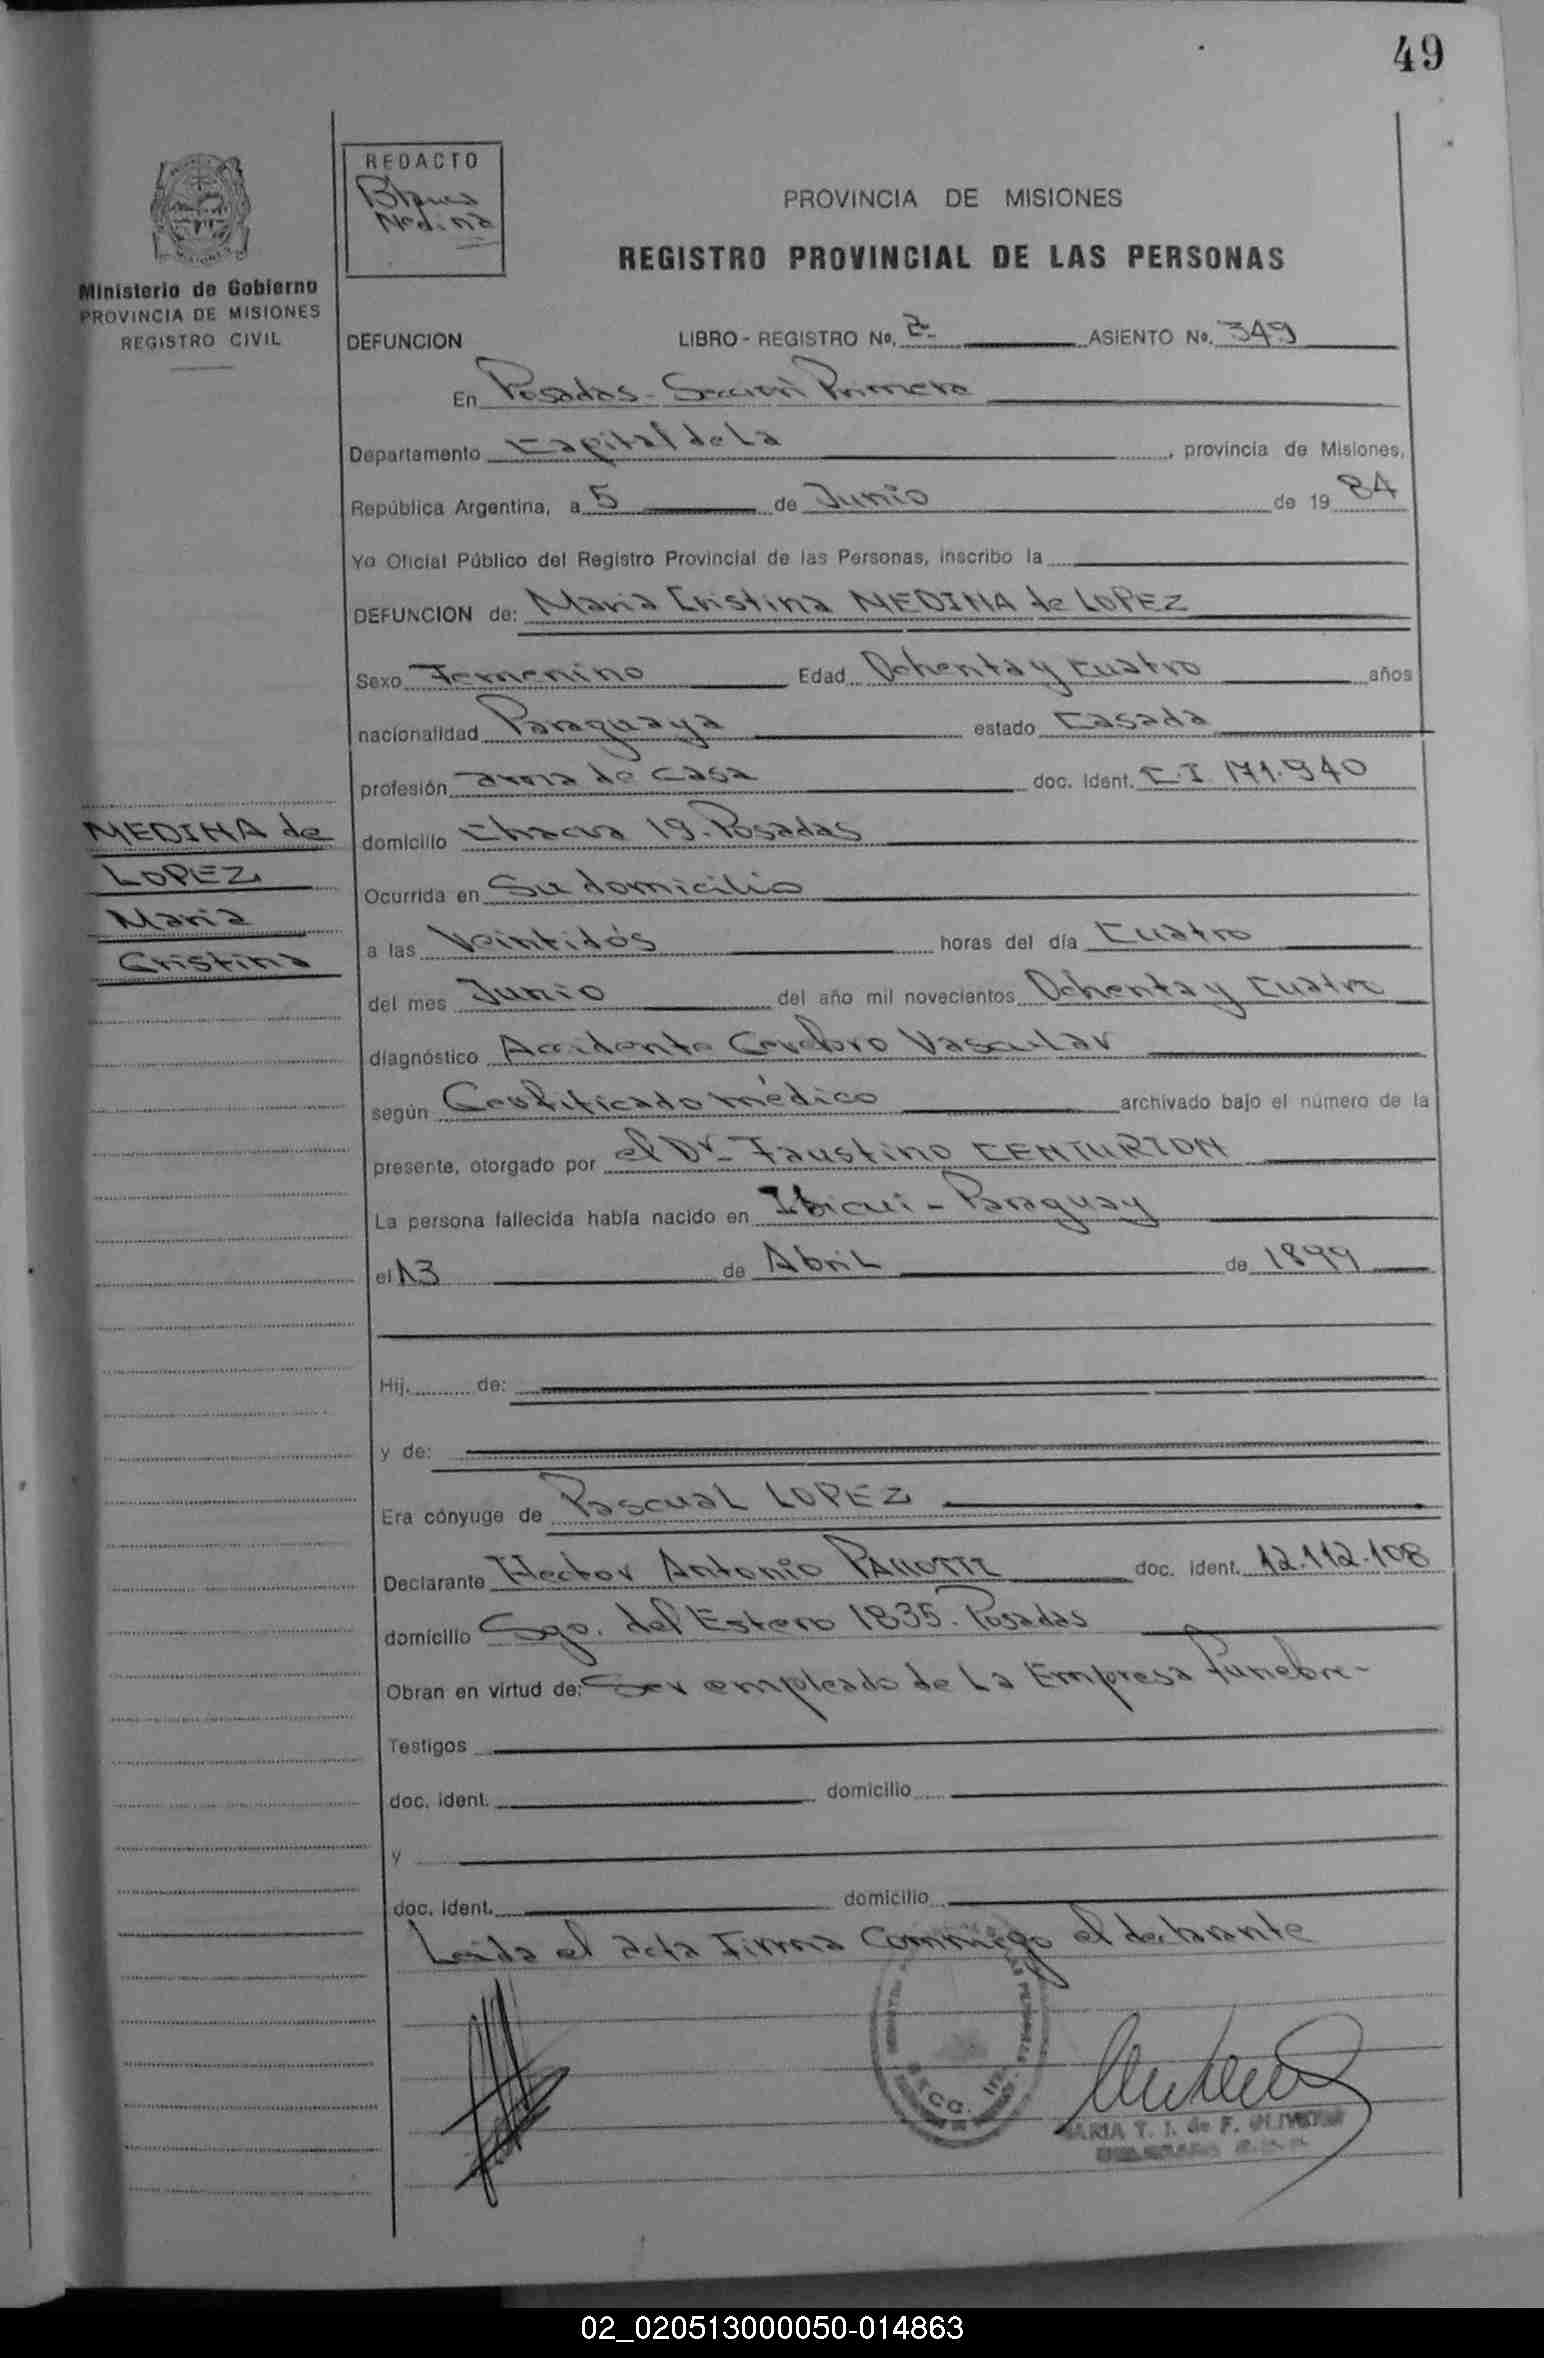 49
REDACTO
Blanca
Medina
PROVINCIA DE MISIONES
REGISTRO PROVINCIAL DE LAS PERSONAS
Ministerio de Gobierno
PROVINCIA DE MISIONES
REGISTRO CIVIL
DEFUNCION LIBRO - REGISTRO No. 2 ASIENTO No. 349
En Posadas - Sección Primera
Departamento Capital de La , provincia de Misiones,
República Argentina, a 5 de Junio de 19 84
Yo Oficial Público del Registro Provincial de las Personas, inscribo la
DEFUNCION de: Maria Cristina MEDINA de LOPEZ
Sexo Femenino Edad Ochenta y cuatro años
nacionalidad Paraguaya estado Casada
profesión ama de casa doc. Ident. C.I 171.940
MEDINA de
LOPEZ
Maria
Cristina
domicilio Chacra 19. Posadas
Ocurrida en Su domicilio
a las Veintidós horas del día Cuatro
del mes Junio del año mil novecientos Ochenta y Cuatro
diagnóstico Accidente Cerebro Vascular
según Certificado médico archivado bajo el número de la
presente, otorgado por el Dr. Faustino CENTURION
La persona fallecida había nacido en Ibicui - Paraguay
el 13 de Abril de 1899
Hij. de:
y de:
Era cónyuge de Pascual LOPEZ
Declarante Hector Antonio doc. ident. 12.112.108
domicilio Sgo. del Estero 1835. Posadas
Obran en virtud de: Ser empleado de La Empresa funebre-
Testigos
doc. ident. domicilio
y
doc. ident. domicilio
Leida el acta Firma Commigo el declarante
MARIA T. I. de F. OLIVEIRA
02_020513000050-014863